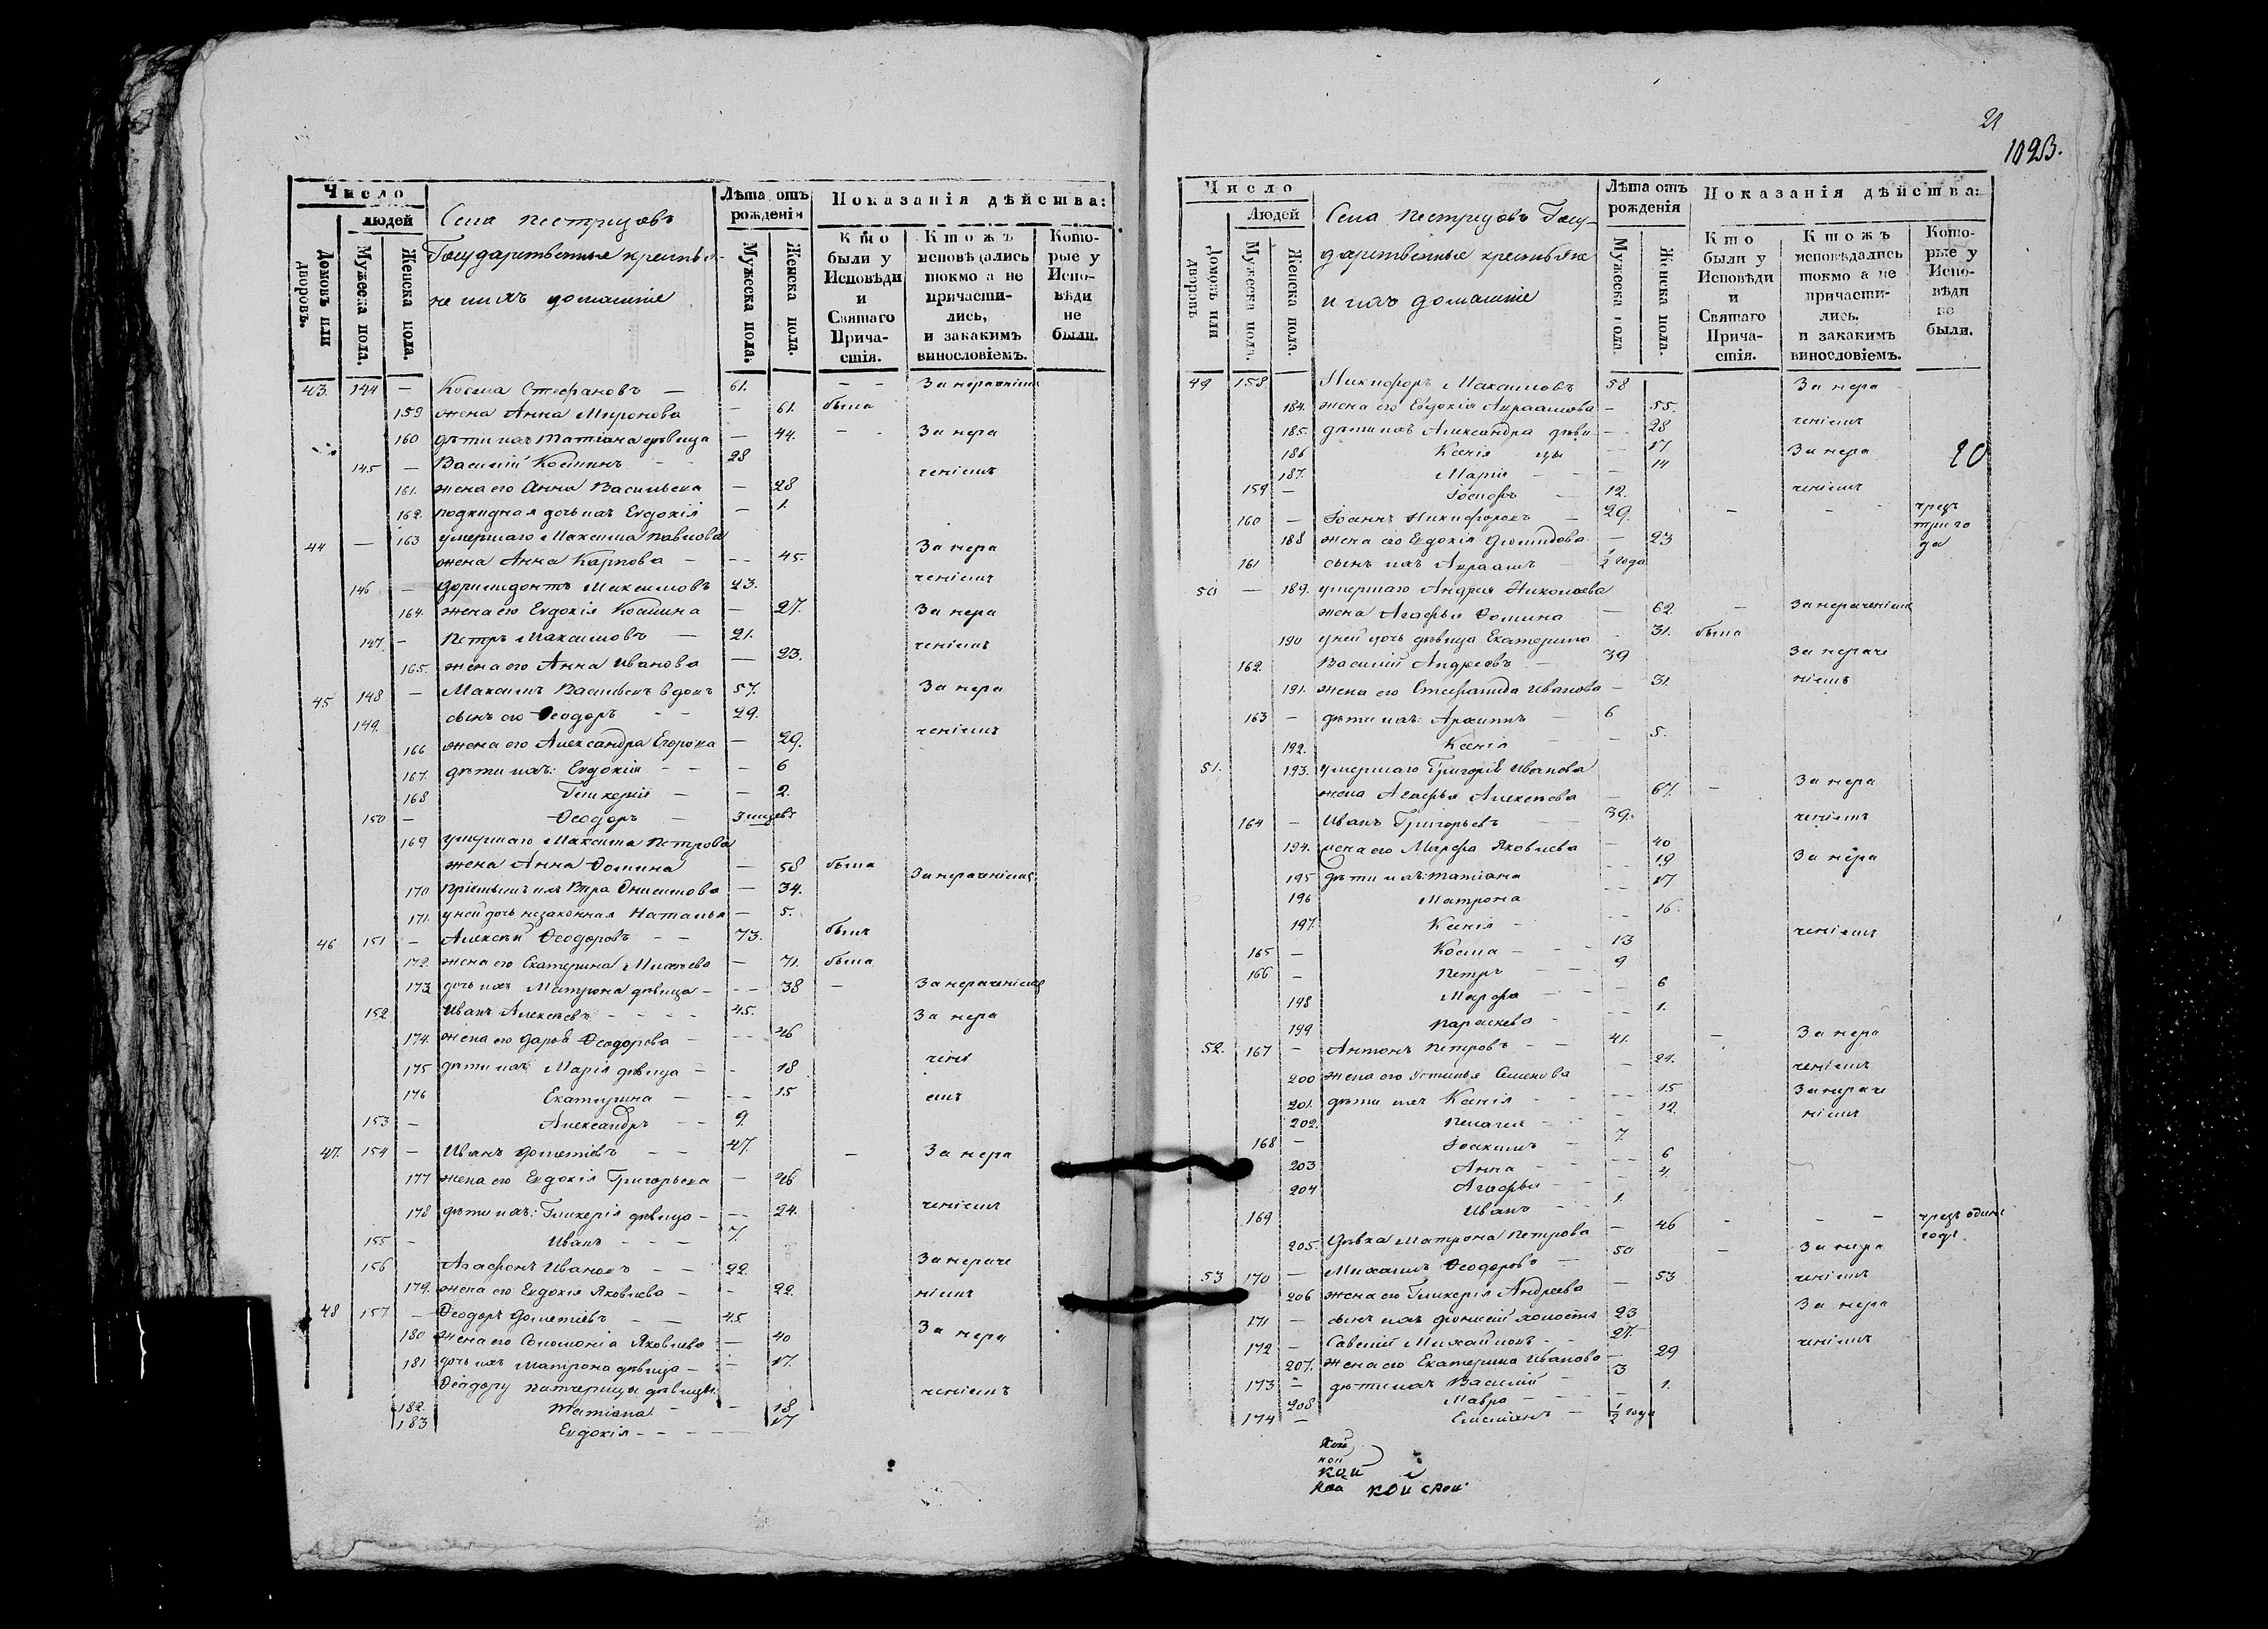 Число
людей
Домовъ или дворовъ.
Мужеска пола.
Женска пола.
Села Пестрицовъ
Государственные крестья-
не ихъ домашніе
Лѣта отъ рожденія
Мужеска пола.
Женска пола.
Показанія дѣйства:
Кто были у Исповѣди и Святаго Причастія.
Ктожъ исповѣдались токмо а не причастились, и закакимъ винословіемъ.
Которые у Исповѣди не были.
43. 144 — Косма Стефановъ — 61. — — За нераченіемъ
159 жена Анна Миронова — 61. была
160 дѣти ихъ Татіана дѣвица — 44. — За нера
145 — Василій Косминъ — — 28
161. жена его Анна Васильева — 28 ченіемъ
162. подкидная дочь ихъ Евдокія — 1.
44 — 163 умершаго Максима Павлова
жена Анна Карпова — — — 45. За нера
146 — Доримидонтъ Максимовъ 23. ченіемъ
164. жена его Евдокія Космина — 27. За нера
147 — Петръ Максимовъ — 21. ченіемъ
165. жена его Анна Иванова — 23.
45 148 — Максимъ Васильевъ вдовъ 57. За нера
149. сынъ его Ѳеодоръ — — 29. ченіемъ
166 жена его Александра Егорова — 29.
167. дѣти ихъ: Евдокія — — — 6
168 Гликерія — — 2.
150 — Ѳеодоръ — 3 мцевъ
169 умершаго Максима Петрова
жена Анна Ѳомина — 58 была
170 Пріемышъ ихъ Вѣра Онисимова — 34. За нераченіемъ
171. у ней дочь незаконная Наталья — 5.
46 151 — Алексѣй Ѳеодоровъ — — 73. былъ
172. жена его Екатерина Михѣева — 71. была
173 дочь ихъ Матрона дѣвица — — — 38 — За нераченіемъ
152 Иванъ Алексѣевъ — — — — 45. За нера
174. жена его Дарья Ѳеодорова — — — 46
175 дѣти ихъ Марія дѣвица — — 18 чені
176 Екатерина — — — 15 емъ
153 — Александръ — — 9.
47. 154 — Иванъ Дометіевъ — — 47. — За нера
177 жена его Евдокія Григорьева — 46
178 дѣти ихъ: Гликерія дѣвица — — — 24. ченіемъ
155 — Иванъ — — — 7.
156 Агафонъ Ивановъ — — 22. За нераче
179. жена его Евдокія Яковлева — — 22. ніемъ
48 157 — Ѳеодоръ Дометіевъ — — 45
180 жена его Соломонія Яковлева — 40 За нера
181 дочь ихъ Матрона дѣвица — — 17.
Ѳеодору патчерицы дѣвицы:
182. Татіана — — 18 ченіемъ
183 Евдокія — — — — 17
21
1023.
Число
Людей
Домовъ или дворовъ
Мужеска пола.
Женска пола.
Села Пестрицовъ Госу-
дарственные крестьяне
и ихъ домашніе
Лѣта отъ рожденія
Мужеска пола.
Женска пола.
Показанія дѣйства:
Кто были у Исповѣди и Святаго Причастія.
Ктожъ исповѣдались токмо а не причастились, и закакимъ винословіемъ.
Которые у Исповѣди не были.
49 158 Никифоръ Максимовъ 58 За нера
184. жена его Евдокія Авраамова — 55.
185. дѣти ихъ Александра дѣви — 28 ченіемъ
186 Ксенія цы — 17 За нера 20
187. Марія — — 14
159 — Іосифъ — 12. ченіемъ
160 — Іоаннъ Никифоровъ — 29. — — чрезъ три года
188 жена его Евдокія Діомидова — 23
161 сынъ ихъ Авраамъ — 1/2 года
50 — 189. умершаго Андрея Николаева
жена Агафья Ѳомина — 62. — За нераченіемъ
190 у ней дочь дѣвица Екатерина 31. была
162. Василій Андреевъ — 39 За нераче
191. жена его Стефанида Иванова — 31. ніемъ
163 — дѣти ихъ: Архипъ — 6
192. Ксенія — — 5.
51. 193. умершаго Григорія Иванова
жена Агафья Алексѣева — 67. — За нера
164 — Иванъ Григорьевъ — 39. ченіемъ
194. жена его Марфа Яковлева — 40
195 дѣти ихъ: Татіана — 19 За нера
196 Матрона — 17
197. Ксенія — — 16.
165 — Косма — — — 13 ченіемъ
166 — Петръ — — 9
198 Марфа — — — 6
199 Параскева — — 1.
52. 167 — Антонъ Петровъ — — 41. — За нера
200 жена его Устинья Семенова — 21. ченіемъ
201. дѣти ихъ Ксенія — — — 15 За нераче
202. Пелагія — — — 12. ніемъ
168 — Іоакимъ — 7.
203 Анна — — — 6
204 Агафья — — — 4.
169 Иванъ — — 1.
205. Дѣвка Матрона Петрова — 46 — — — чрезъ одинъ годъ
53 170 — Михаилъ Ѳеодоровъ — 50 — За нера
206 жена его Гликерія Андреева — 53 ченіемъ
171 — сынъ ихъ Діонисій холостъ 23 За нера
172 — Савелій Михайловъ — 27.
207. жена его Екатерина Иванова — 29 ченіемъ
173 — дѣти ихъ Василій — 3
208 Мавра — — — 1.
174 — Емельянъ — 1/2 года
кой
кои
кои
кои свои